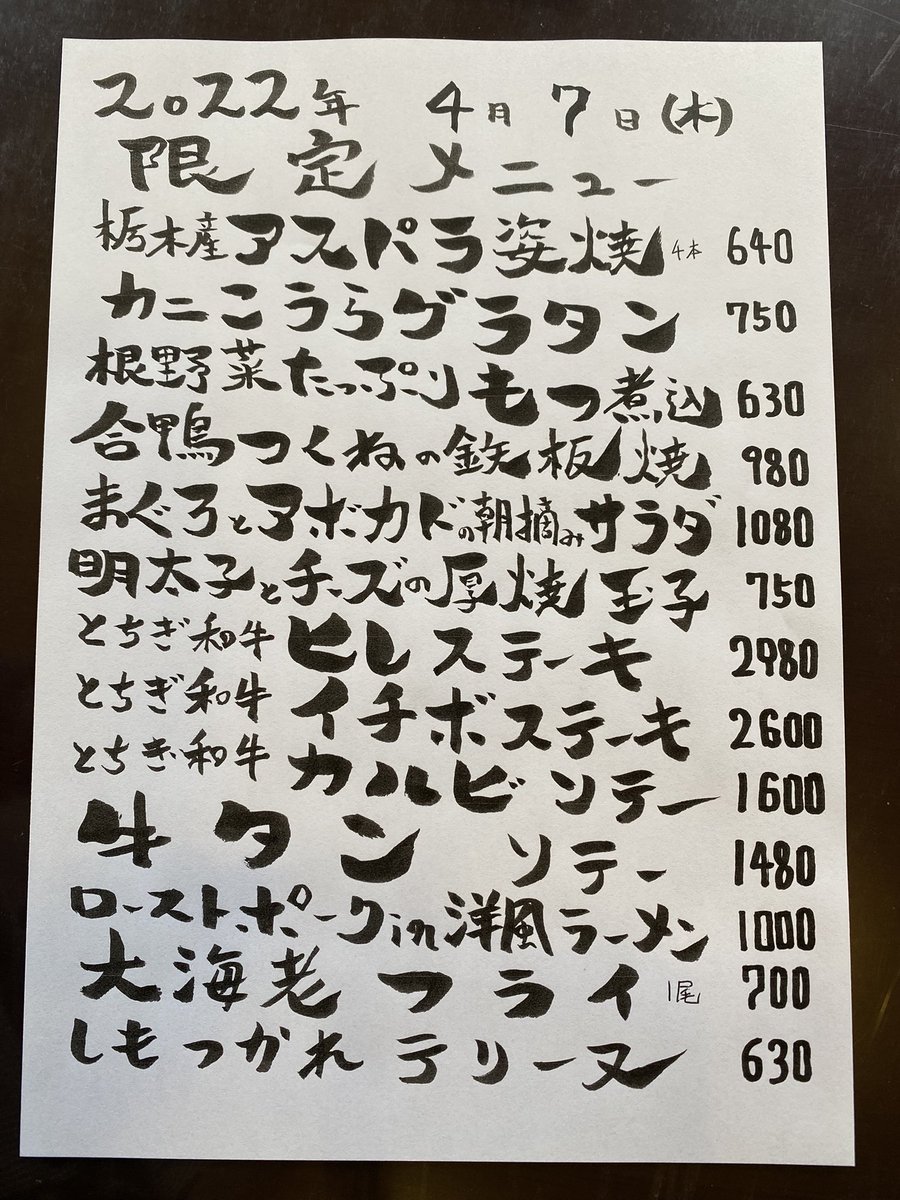 2022年 4月7日(木)
限定メニュー
栃木産アスパラ姿焼 4本 640
カニこうらグラタン 750
根野菜たっぷりもつ煮込 630
合鴨つくねの鉄板焼 980
まぐろとアボカドの朝摘みサラダ 1080
明太子とチーズの厚焼玉子 750
とちぎ和牛 ヒレステーキ 2980
とちぎ和牛 イチボステーキ 2600
とちぎ和牛 カルビソテー 1600
牛タン ソテー 1480
ローストポークin洋風ラーメン 1000
大海老フライ 1尾 700
しもつかれテリーヌ 630